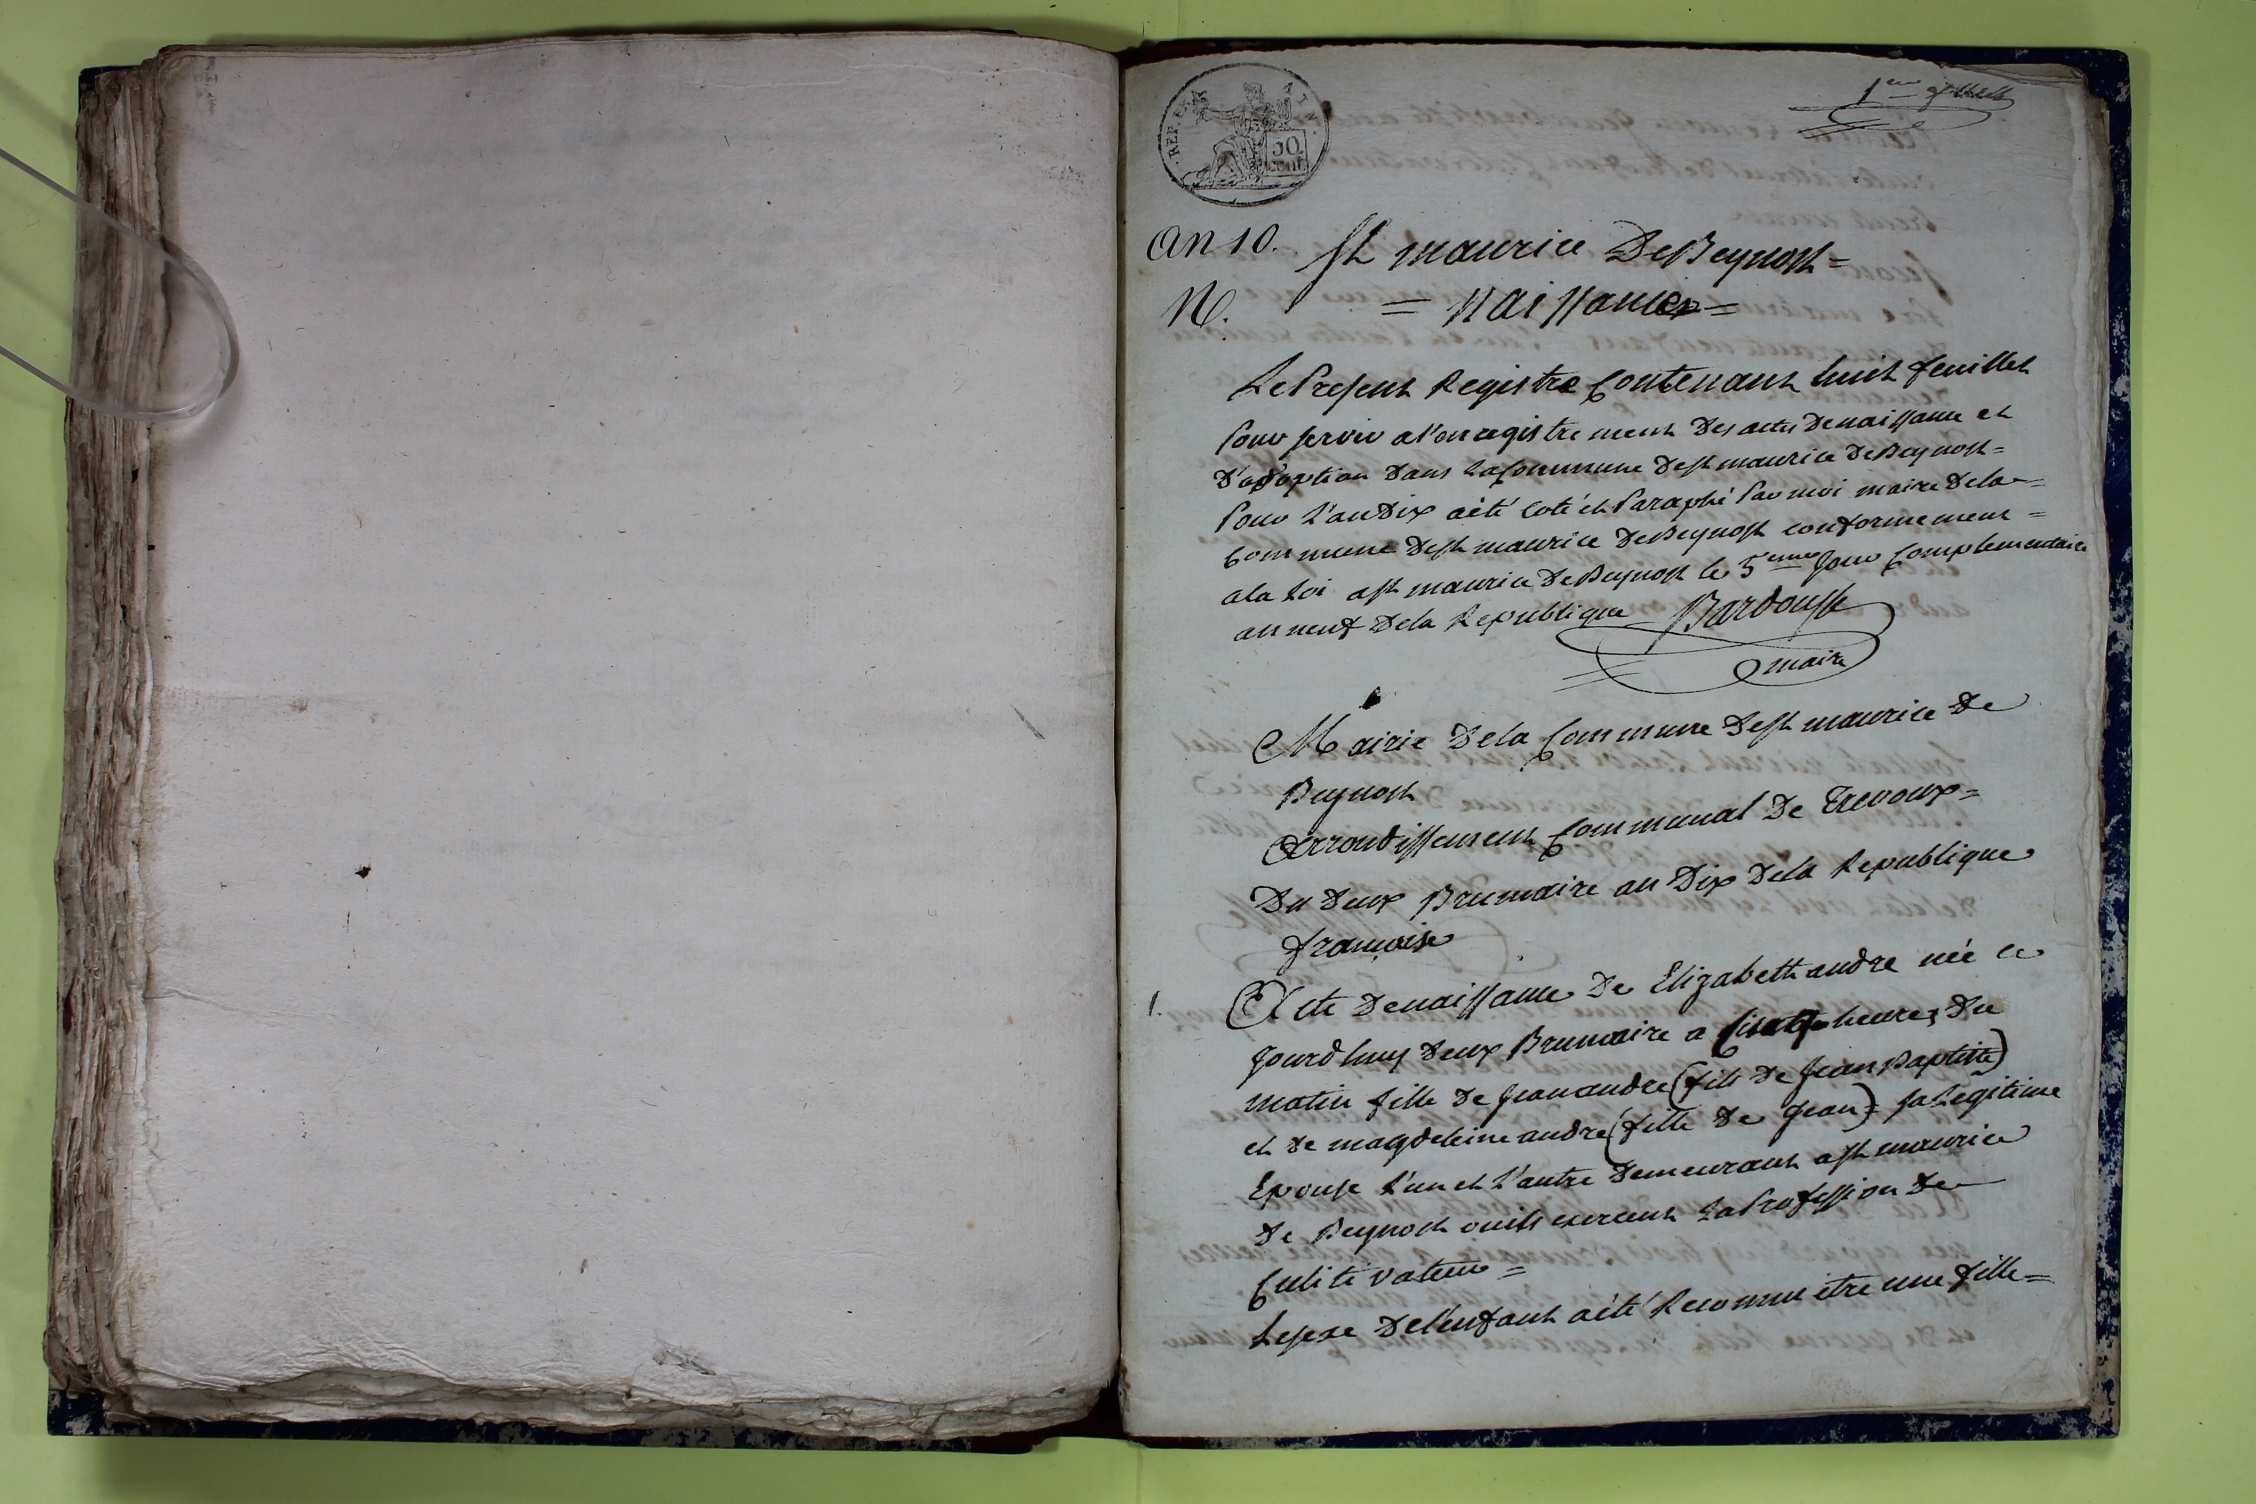 REP. FRA
50
CENT.
1er feuillet
an 10.
St maurice De Beynost =
N.
= Naissances =
Le Present Registre Contenant huit feuillet
Pour servir a l'enregistrement Des actes De naissance et
D'adoption Dans La Commune De St maurice De Beynost =
Pour L'an Dix a été Coté et Paraphé Par moi maire De la =
Commune De St maurice De Beynost conformement =
a la Loi a St maurice De Beynost le 5eme Jour Complementaire
an neuf De la Republique Bardousse
maire
Mairie De la Commune De St maurice De
Beynost
Arrondissement Communal De Trevoux =
Du Deux Brumaire an Dix De la Republique
françoise
1.
Acte De naissance De Elizabeth andre née ce
Jourdhuy Deux Brumaire a heures Du
matin fille De Jean andre (fils De Jean Baptiste)
et De magdeleine andré (fille De Jean) = sa Legitime
Epouse L'un et L'autre Demeurant a St maurice
De Beynost ou ils exercent La Profession De
Cultivateur =
Le sexe De L'enfant a été Reconnu etre une fille =